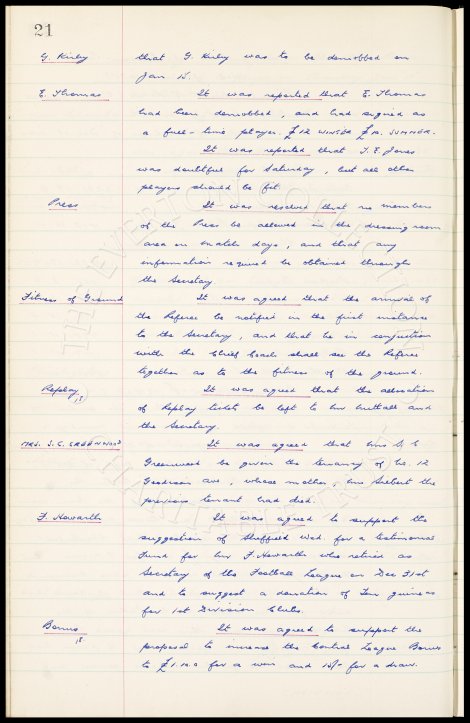 21
G. Kirby that G. Kirby was to be demobbed on
Jan 15.
E. Thomas It was reported that E. Thomas
had been demobbed, and had signed as
a full-time player. £12 WINTER £10. SUMMER.
It was reported that T. E. Jones
was doubtful for Saturday, but all other
players should be fit.
Press It was resolved that no members
of the Press be allowed in the dressing room
area on match days, and that any
information required be obtained through
the Secretary
Fitness of Ground It was agreed that the arrival of
the Referee be notified in the first instance
to the Secretary, and that he in conjunction
with the Chief Coach shall see the Referee
together as to the fitness of the ground.
Replay It was agreed that the allocation
of Replay tickets be left to Mr Nuttall and
the Secretary.
MRS. S. C. GREENWOOD It was agreed that Mrs S. C
Greenwood be given the tenancy of No. 12
Goodison Ave, whose mother, Mrs the
previous tenant had died.
F. Howarth It was agreed to support the
suggestion of Sheffield Wed for a testimonial
Fund for Mr F. Howarth who retired as
Secretary of the Football League on Dec 31st
and to suggest a donation of Ten guineas
for 1st Division Clubs.
Bonus It was agreed to support the
proposal to increase the Central League Bonus
to £1.10.0 for a win and 15/- for a draw.
THE EVERTON COLLECTION
CHARITABLE TRUST